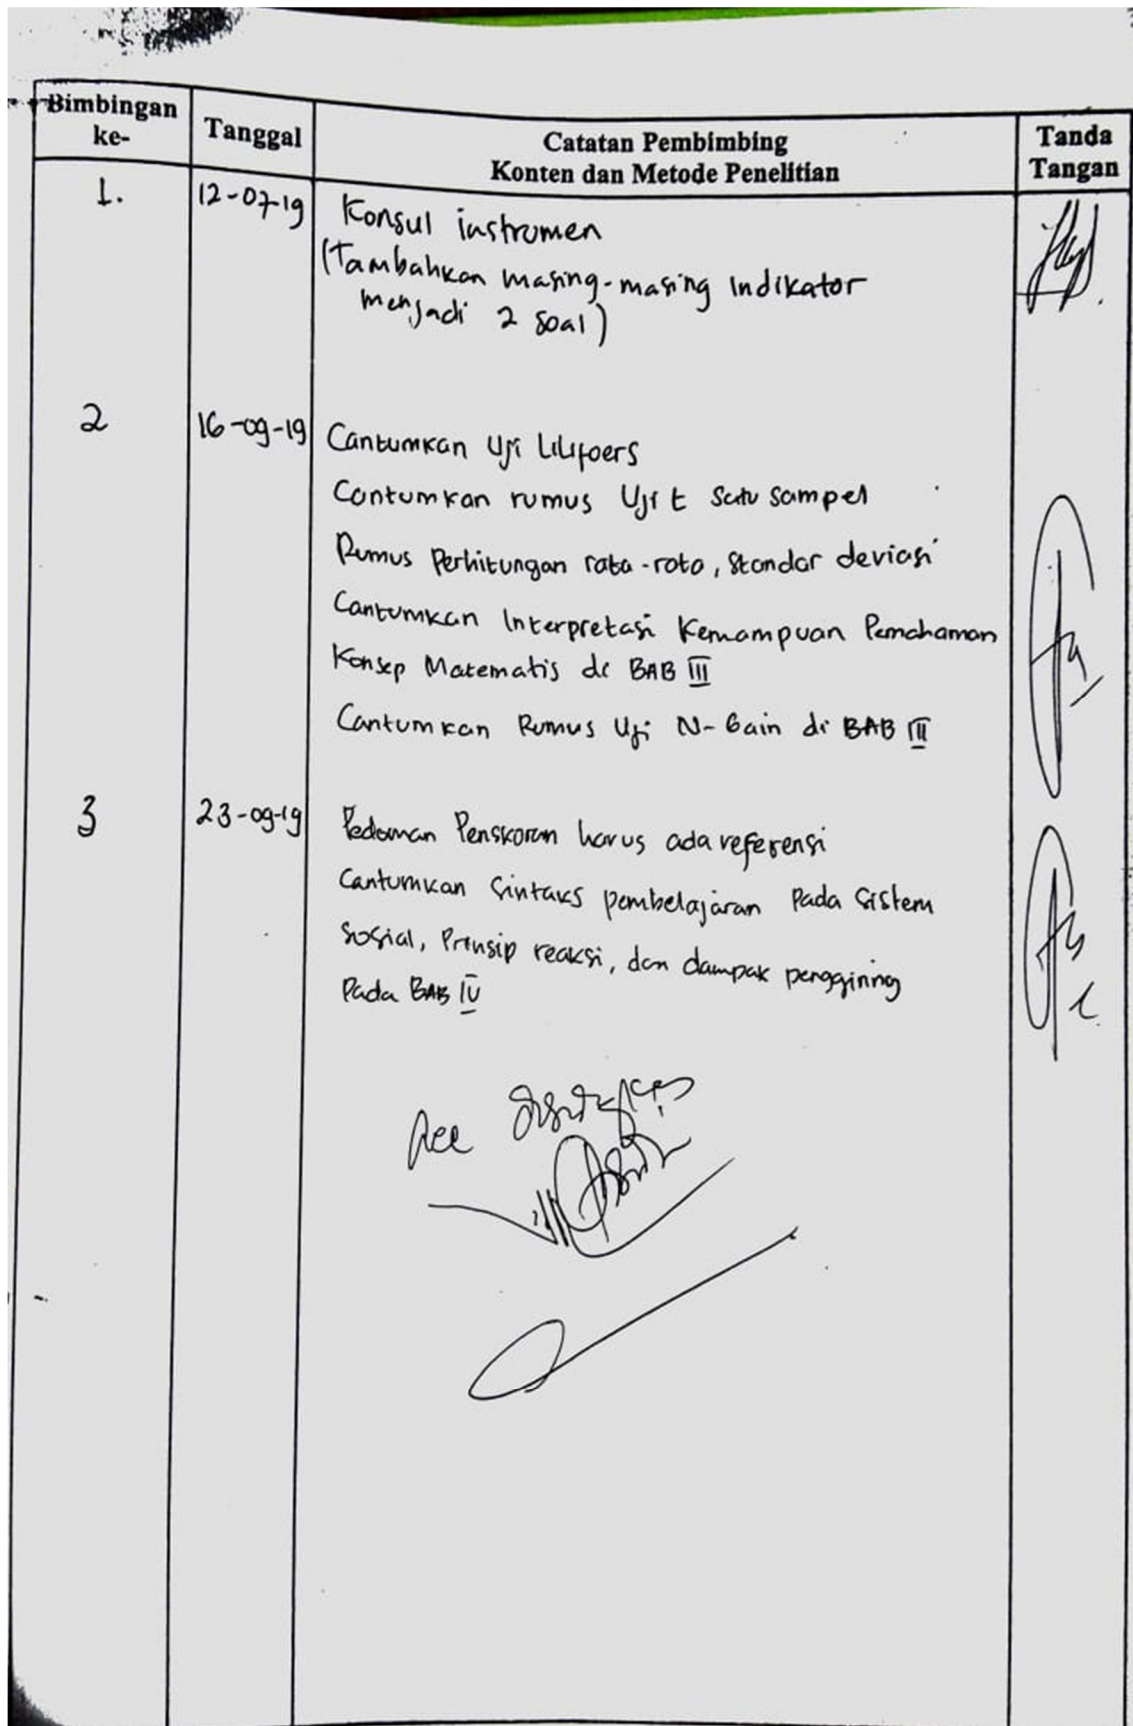 Bimbingan ke-
Tanggal
Catatan Pembimbing
Konten dan Metode Penelitian
Tanda Tangan
1.
12-07-19
Konsul instrumen
(Tambahkan masing-masing indikator
menjadi 2 soal)
2
16-09-19
Cantumkan Uji Lilifoers
Cantumkan rumus Uji t satu sampel
Rumus Perhitungan rata-rata, standar deviasi
Cantumkan Interpretasi Kemampuan Pemahaman
Konsep Matematis di BAB III
Cantumkan Rumus Uji N-Gain di BAB III
3
23-09-19
Pedoman Penskoran harus ada referensi
Cantumkan Sintaks pembelajaran Pada Sistem
Sosial, Prinsip reaksi, dan dampak penggiring
Pada BAB IV
Acc